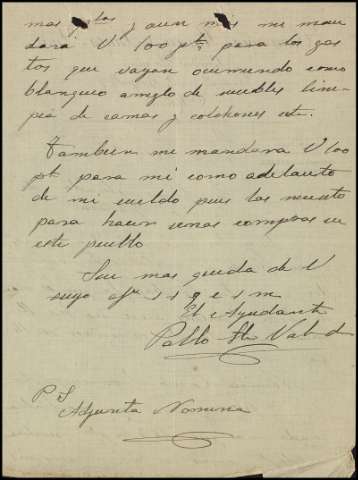 mas justas y aun mas me man
dará V 100 pts para los gas
tos que vayan ocurriendo como
blanqueo arreglo de muebles lim
pia de camas y colchones etc.
Tambien me mandara V 100
pts para mi como adelanto
de mi sueldo pues las necesito
para hacer unas compras en
este pueblo
Sin mas queda de V
suyo afmo s s q e s m
El Ayudante
Pablo
P S
Adjunta Nomina